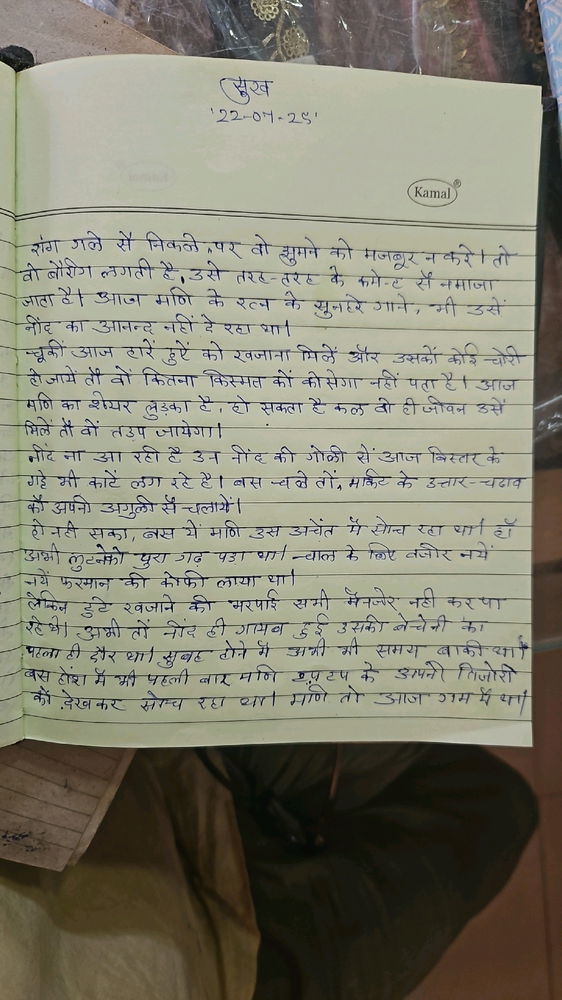 सुख
'22-07-25'
Kamal
राग गले सै निकले, पर वो झुमने को मजबूर न करे। तो
वो बौरिंग लगती है, उसे तरह-तरह के कमेन्ट सै नमाजा
जाता है। आज मणि के रत्न के सुनहरे गाने, भी उसें
नींद का आनन्द नहीं दे रहा था।
चूकीं आज हारें हुऐं को खजाना मिलें और उसकों कोई चोरी
हो जायें तौ वों कितना किस्मत कों कोसेगा नहीं पता है। आज
मणि का शेयर लुड़का है, हो सकता है कल वो ही जीवन उसें
मिलें तौ वों तड़प जायेगा।
नींद ना आ रही है उन नींद की गोली सें आज बिस्तर के
गद्दे भी काटें लग रहे है। बस चले तों, मार्केट के उत्तार-चढाव
कौ अपनी अगुली सै चलायें।
हो नही सका, बस यें मणि उस अचेंत मैं सोच रहा था। हाँ
अभी लुटनेको पुरा गढ़ पडा था। चाल के लिए वजीर नयें
नयें फरमान की कोफी लाया था।
लेकिन टुटे खजाने की भरपाई सभी मैनजेर नही कर पा
रहे थे। अभी तों नींद ही गायब हुई उसकी बेचेनी का
पहला ही दौर था। सुबह होने मे अभी भी समय बाकी था।
बस होंश मैं भी पहली बार मणि के अपनी तिजोरी
कों देखकर सोच रहा था। मणि तो आज गम मैं था।